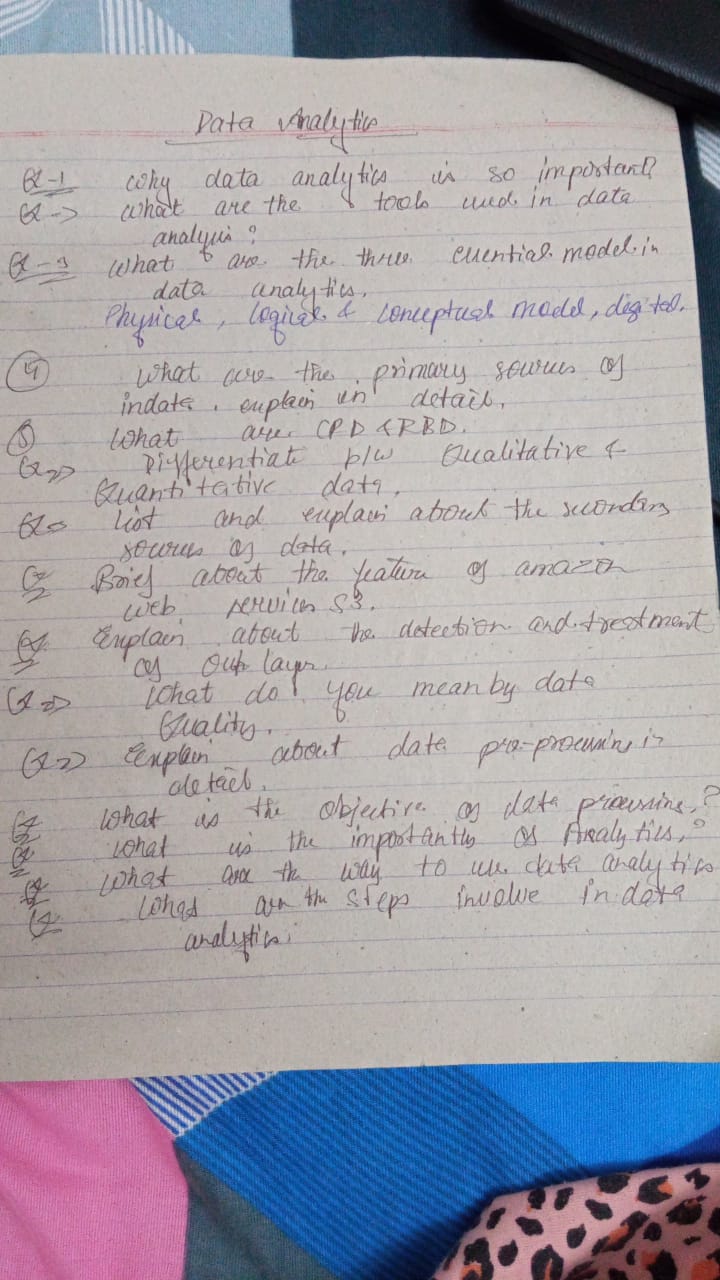 Data Analytics
Q-1 Why data analytics is so important?
Q-> What are the tools used in data
analysis?
Q-3 What are the three essential model in
data analytics.
Physical, logical & conceptual model, digital.
(4) What are the primary sources of
indata. explain in detail.
(5) What are CPD & RBD.
Q=> Differentiate b/w Qualitative &
Quantitative data.
Q= List and explain about the secondary
sources of data.
Q= Brief about the feature of amazon
web services S3.
Q= Explain about the detection and treatment
of Out layer.
Q=> What do you mean by data
Quality.
Q=> Explain about data pre-processing in
detail.
Q= What is the objective of data processing?
Q= What is the importantly of Analytics?
Q= What are the way to use data analytics
Q= What are the steps involve in data
analytics.